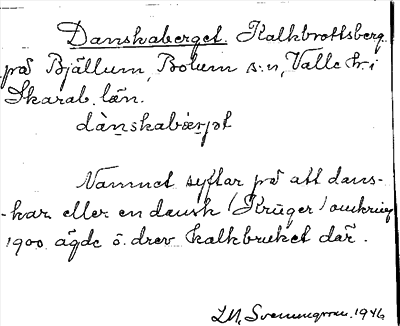 Danskaberget. Kalkbrottsberg
på Bjällum, Bolum s:n, Valle h:r i
Skarab. län.
dànskabærjət
Namnet syftar på att dans-
-kar eller en dansk (Krüger) omkring
1900 ägde o. drev kalkbruket där.
L.M. Svenungsson. 1946